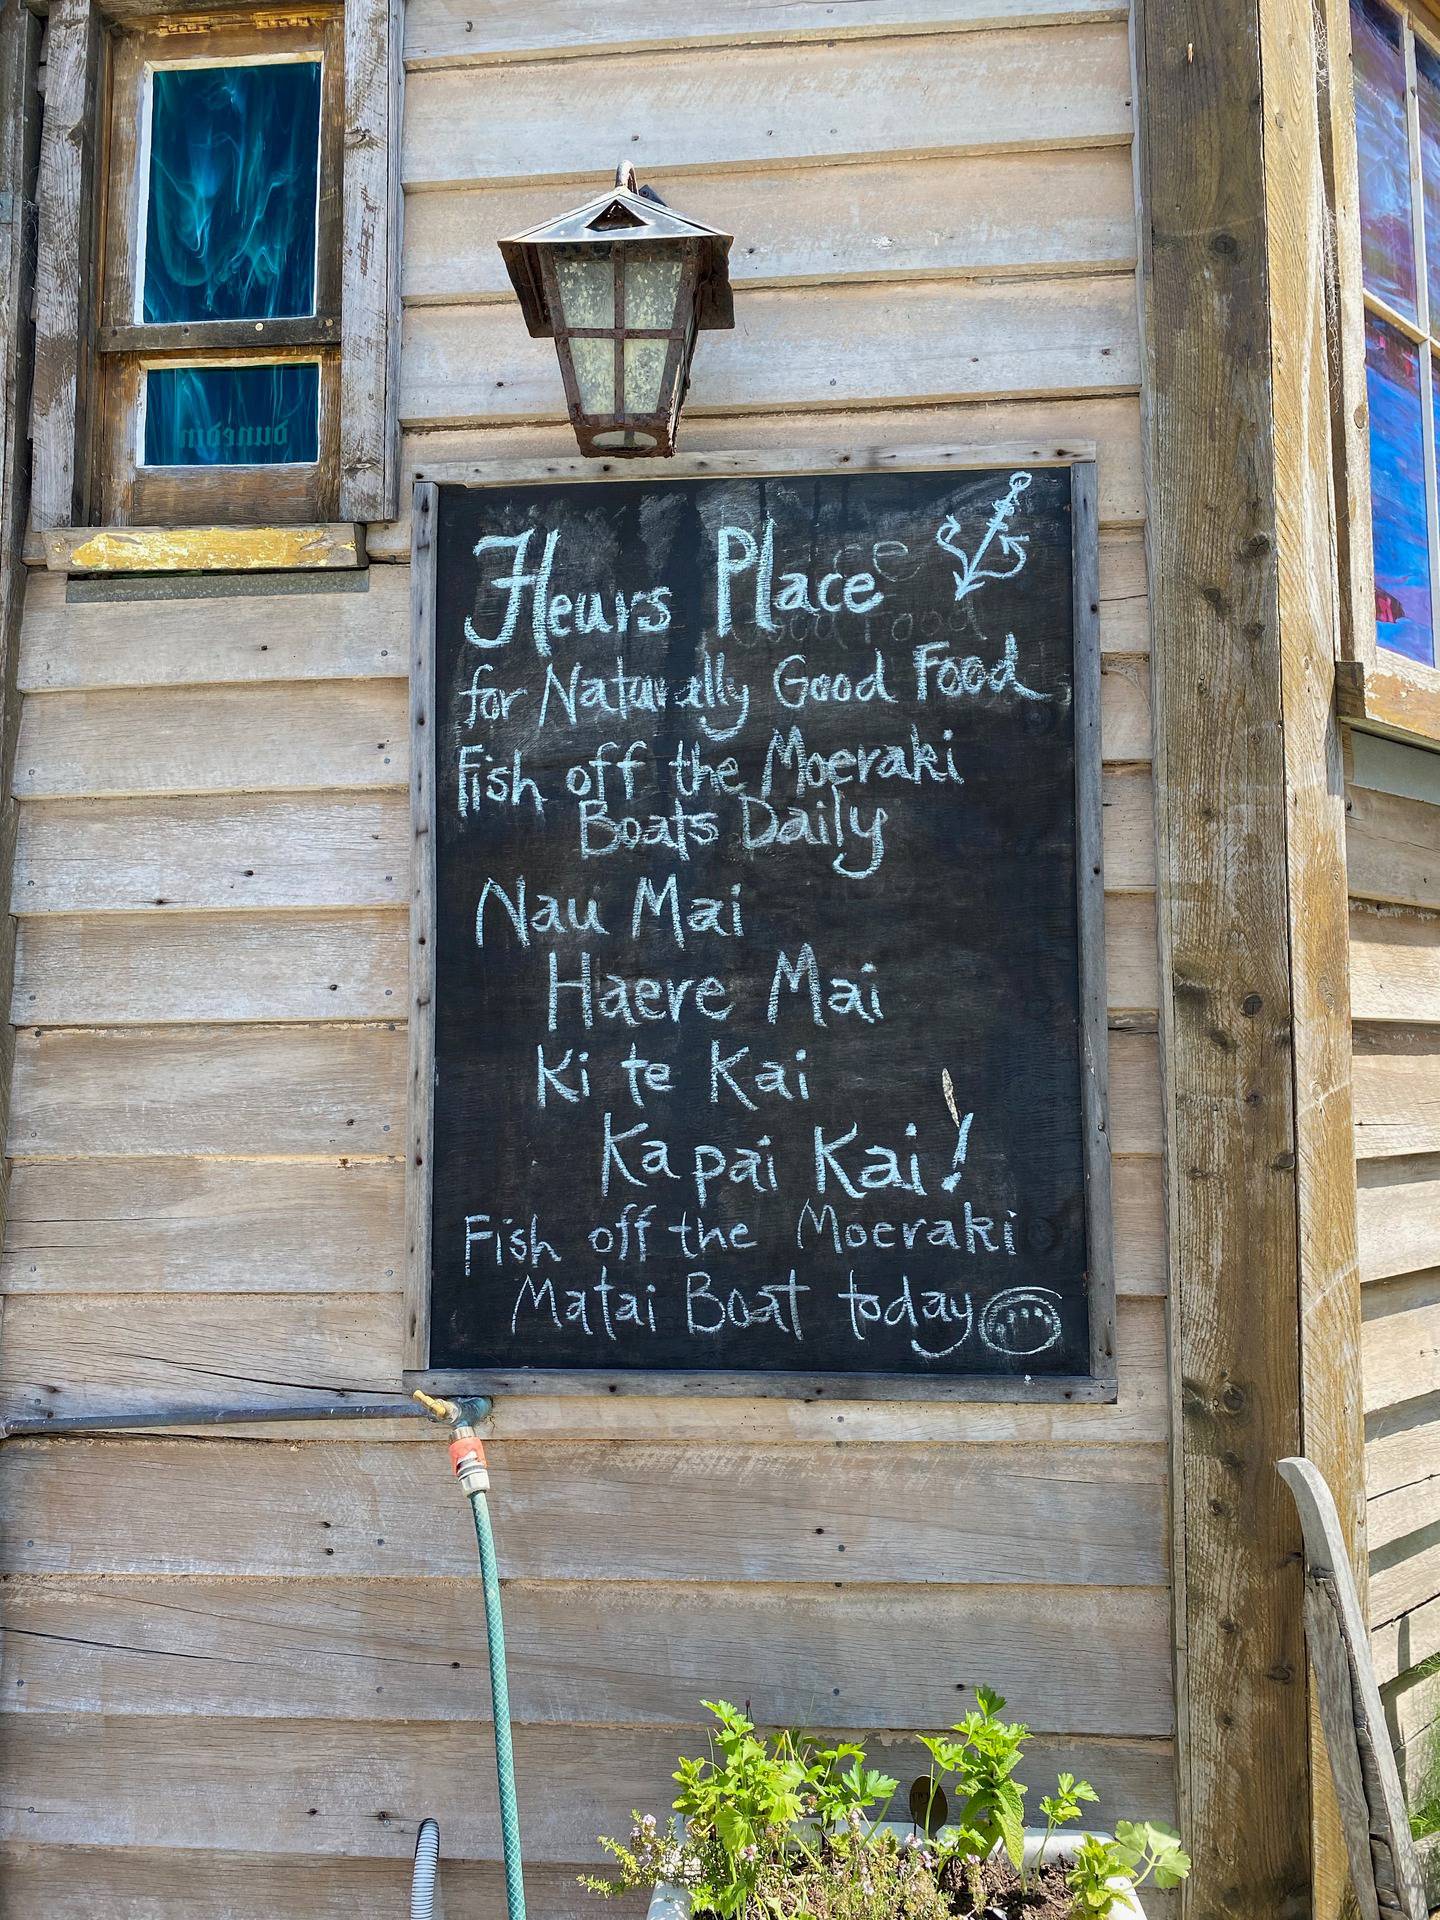 dunedin
Fleurs Place
for Naturally Good Food
Fish off the Moeraki
Boats Daily
Nau Mai
Haere Mai
Ki te Kai
Ka pai Kai!
Fish off the Moeraki
Matai Boat today